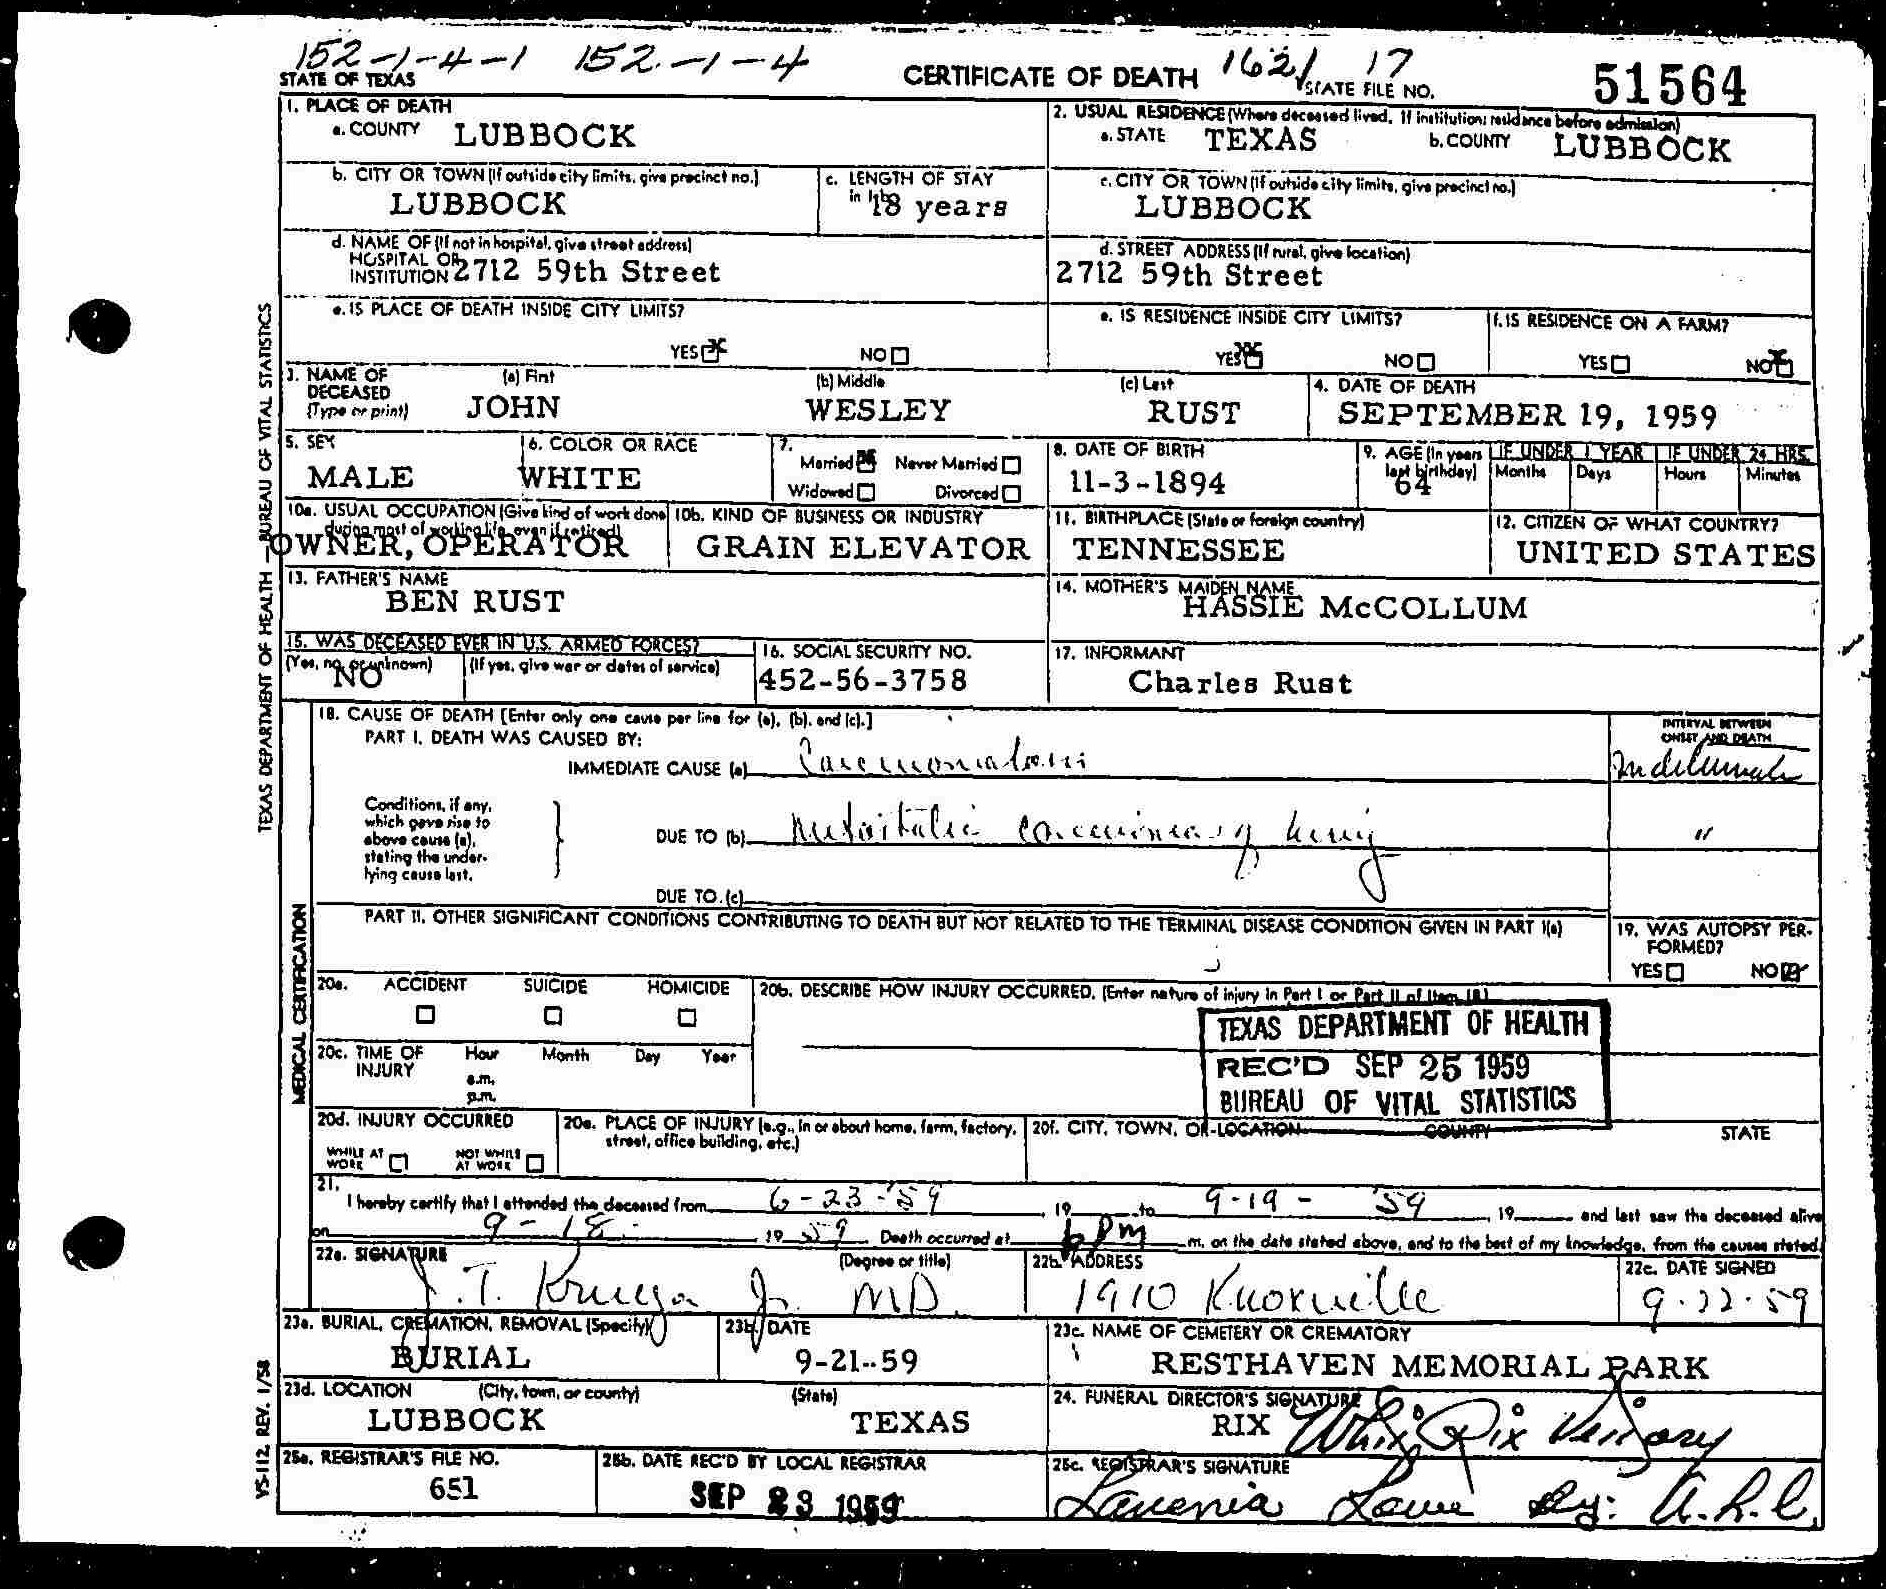 152-1-4-1 152-1-4 1621 17
STATE OF TEXAS CERTIFICATE OF DEATH STATE FILE NO. 51564
1. PLACE OF DEATH
a. COUNTY LUBBOCK
2. USUAL RESIDENCE (Where deceased lived. If institution: residence before admission)
a. STATE TEXAS b. COUNTY LUBBOCK
b. CITY OR TOWN (If outside city limits, give precinct no.)
LUBBOCK
c. LENGTH OF STAY
in 1b 18 years
c. CITY OR TOWN (If outside city limits, give precinct no.)
LUBBOCK
d. NAME OF (If not in hospital, give street address)
HOSPITAL OR
INSTITUTION 2712 59th Street
d. STREET ADDRESS (If rural, give location)
2712 59th Street
e. IS PLACE OF DEATH INSIDE CITY LIMITS?
YES NO
e. IS RESIDENCE INSIDE CITY LIMITS?
YES NO
f. IS RESIDENCE ON A FARM?
YES NO
3. NAME OF DECEASED (Type or print)
(a) First (b) Middle (c) Last
JOHN WESLEY RUST
4. DATE OF DEATH
SEPTEMBER 19, 1959
5. SEX
MALE
6. COLOR OR RACE
WHITE
7.
Married Never Married
Widowed Divorced
8. DATE OF BIRTH
11-3-1894
9. AGE (In years last birthday)
64
IF UNDER 1 YEAR IF UNDER 24 HRS.
Months Days Hours Minutes
10a. USUAL OCCUPATION (Give kind of work done
during most of working life, even if retired)
OWNER, OPERATOR
10b. KIND OF BUSINESS OR INDUSTRY
GRAIN ELEVATOR
11. BIRTHPLACE (State or foreign country)
TENNESSEE
12. CITIZEN OF WHAT COUNTRY?
UNITED STATES
13. FATHER'S NAME
BEN RUST
14. MOTHER'S MAIDEN NAME
HASSIE McCOLLUM
15. WAS DECEASED EVER IN U.S. ARMED FORCES?
(Yes, no, or unknown) (If yes, give war or dates of service)
NO
16. SOCIAL SECURITY NO.
452-56-3758
17. INFORMANT
Charles Rust
18. CAUSE OF DEATH [Enter only one cause per line for (a), (b), and (c).]
PART I. DEATH WAS CAUSED BY:
IMMEDIATE CAUSE (a) Carcinomatosis
INTERVAL BETWEEN
ONSET AND DEATH
Conditions, if any,
which gave rise to
above cause (a),
stating the under-
lying cause last.
DUE TO (b) Metastatic carcinoma of lung "
DUE TO (c)
PART II. OTHER SIGNIFICANT CONDITIONS CONTRIBUTING TO DEATH BUT NOT RELATED TO THE TERMINAL DISEASE CONDITION GIVEN IN PART I(a)
19. WAS AUTOPSY PER-
FORMED?
YES NO
20a. ACCIDENT SUICIDE HOMICIDE
20b. DESCRIBE HOW INJURY OCCURRED. (Enter nature of injury in Part I or Part II of Item 18)
TEXAS DEPARTMENT OF HEALTH
REC'D SEP 25 1959
BUREAU OF VITAL STATISTICS
20c. TIME OF INJURY Hour Month Day Year
a.m.
p.m.
20d. INJURY OCCURRED
WHILE AT WORK NOT WHILE AT WORK
20e. PLACE OF INJURY (e.g., in or about home, farm, factory,
street, office building, etc.)
20f. CITY, TOWN, OR LOCATION COUNTY STATE
21.
I hereby certify that I attended the deceased from 6-23-'59 19 to 9-19-'59, 19 and last saw the deceased alive
on 9-18- 19 59 Death occurred at 6 PM m. on the date stated above, and to the best of my knowledge, from the causes stated.
22a. SIGNATURE (Degree or title)
J. T. Krueger Jr. MD.
22b. ADDRESS
1910 Knoxville
22c. DATE SIGNED
9-22-59
23a. BURIAL, CREMATION, REMOVAL (Specify)
BURIAL
23b. DATE
9-21-59
23c. NAME OF CEMETERY OR CREMATORY
RESTHAVEN MEMORIAL PARK
23d. LOCATION (City, town, or county) (State)
LUBBOCK TEXAS
24. FUNERAL DIRECTOR'S SIGNATURE
RIX
25a. REGISTRAR'S FILE NO.
651
25b. DATE REC'D BY LOCAL REGISTRAR
SEP 23 1959
25c. REGISTRAR'S SIGNATURE
Lavenia Lowe By: A.R.C.
TEXAS DEPARTMENT OF HEALTH — BUREAU OF VITAL STATISTICS
MEDICAL CERTIFICATION
VS-112 REV. 1/58